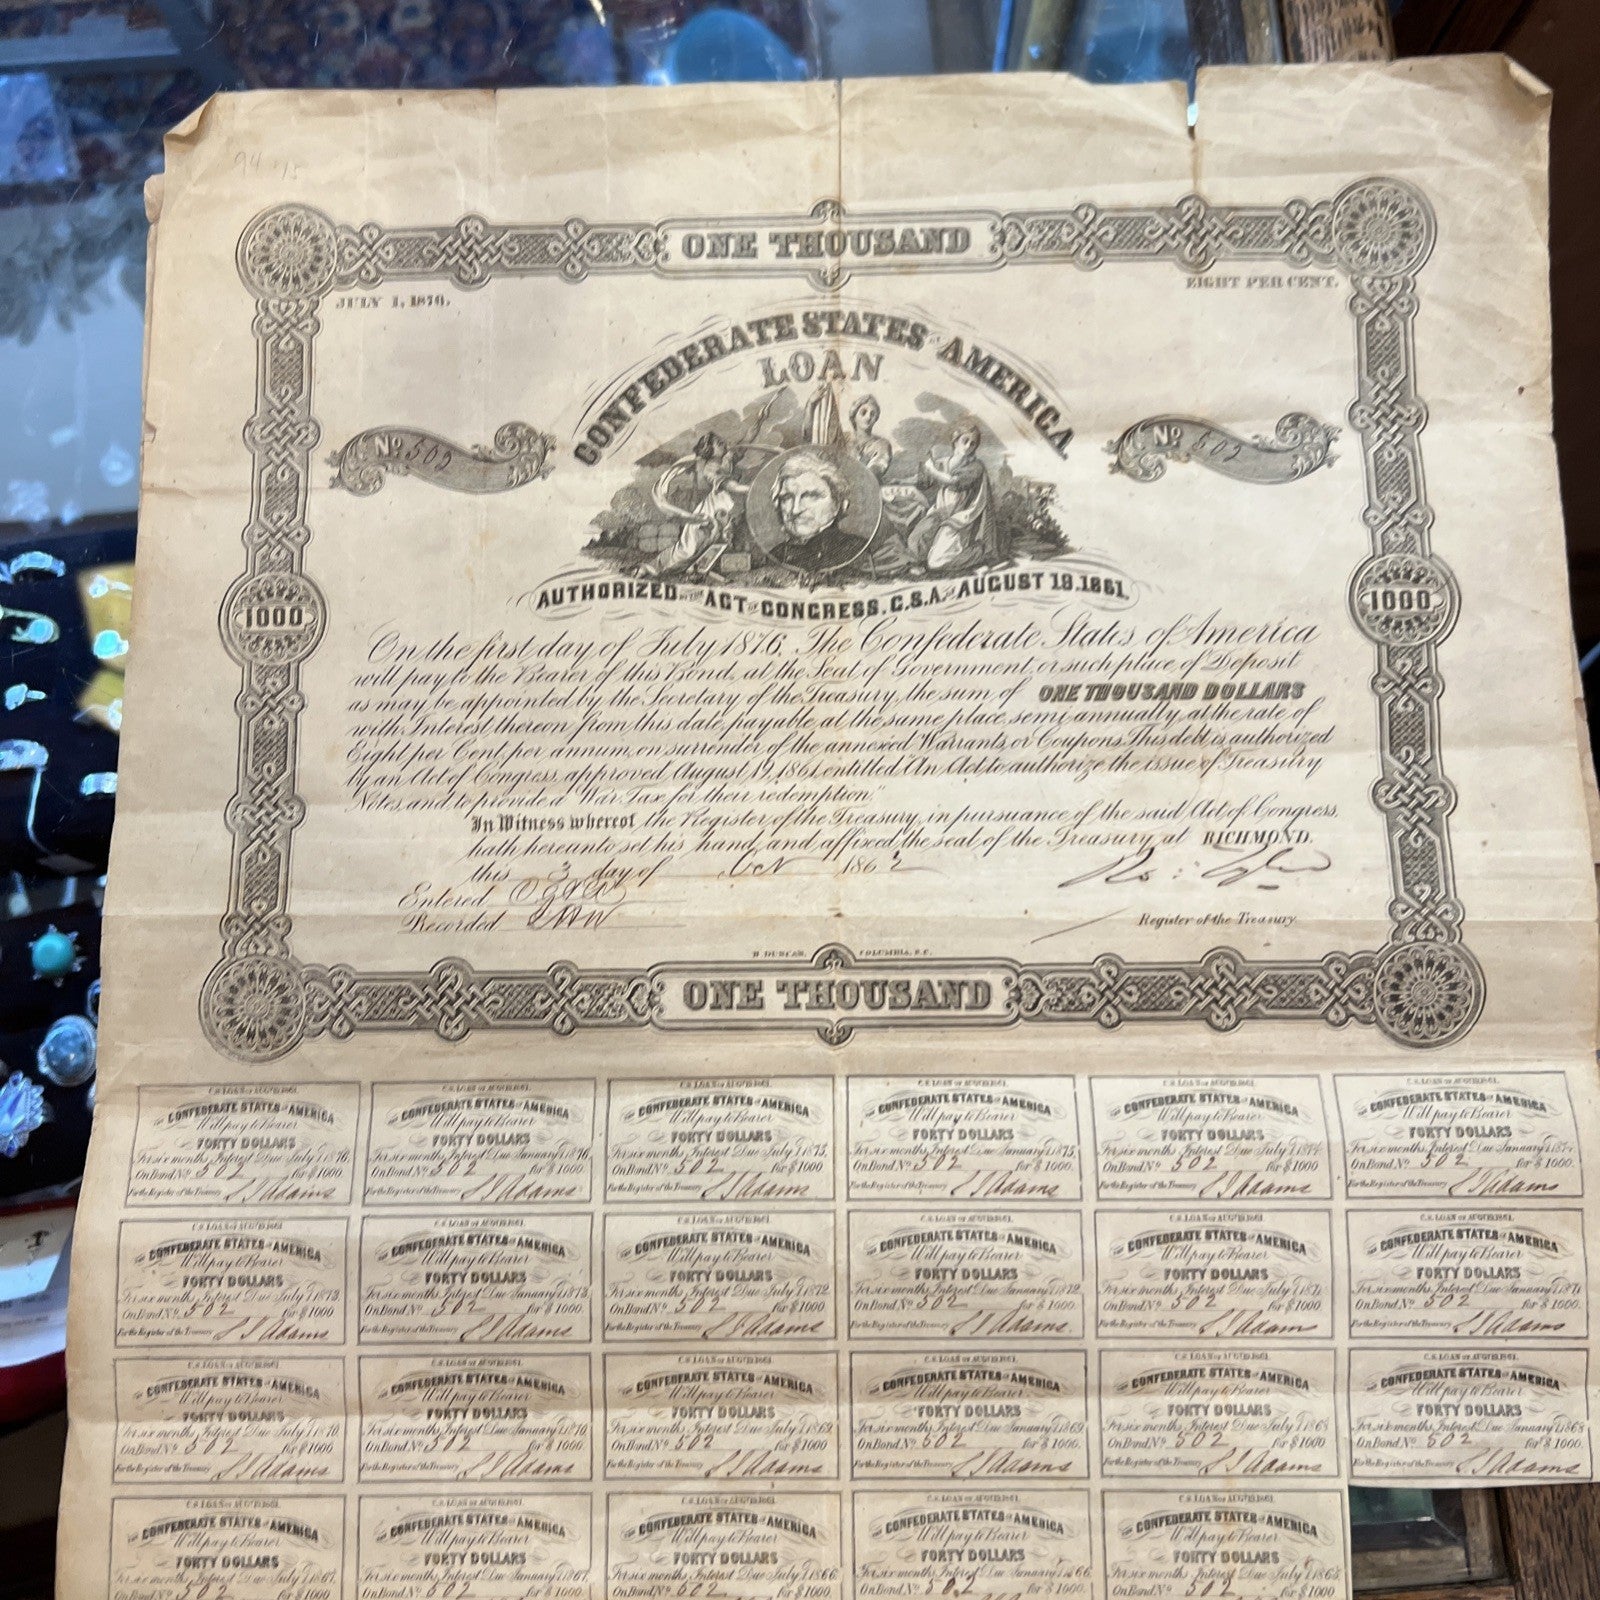 94 15
ONE THOUSAND
JULY 1, 1876.
EIGHT PER CENT.
CONFEDERATE STATES OF AMERICA
LOAN
No 502
No 502
AUTHORIZED BY THE ACT OF CONGRESS, C.S.A. OF AUGUST 19.1861.
1000
1000
On the first day of July 1876, The Confederate States of America
will pay to the Bearer of this Bond, at the Seat of Government, or such place of Deposit
as may be appointed by the Secretary of the Treasury, the sum of ONE THOUSAND DOLLARS
with Interest thereon from this date, payable, at the same place, semi-annually, at the rate of
Eight per Cent, per annum, on surrender of the annexed Warrants, or Coupons. This debt is authorized
by an Act of Congress, approved, August 19, 1861, entitled "An Act to authorize the issue of Treasury
Notes, and to provide a War Tax for their redemption."
In Witness whereof the Register of the Treasury, in pursuance of the said Act of Congress,
hath hereunto set his hand, and affixed the seal of the Treasury, at RICHMOND.
this 3 day of 1862
Entered
Recorded
Register of the Treasury.
B. DUNCAN, COLUMBIA, S.C.
ONE THOUSAND
C.S. LOAN OF AUG 19 1861. C.S. LOAN OF AUG 19 1861. C.S. LOAN OF AUG 19 1861. C.S. LOAN OF AUG 19 1861. C.S. LOAN OF AUG 19 1861. C.S. LOAN OF AUG 19 1861.
THE CONFEDERATE STATES OF AMERICA THE CONFEDERATE STATES OF AMERICA THE CONFEDERATE STATES OF AMERICA THE CONFEDERATE STATES OF AMERICA THE CONFEDERATE STATES OF AMERICA THE CONFEDERATE STATES OF AMERICA
Will pay to Bearer Will pay to Bearer Will pay to Bearer Will pay to Bearer Will pay to Bearer Will pay to Bearer
FORTY DOLLARS FORTY DOLLARS FORTY DOLLARS FORTY DOLLARS FORTY DOLLARS FORTY DOLLARS
For six months Interest Due July 1 1876. For six months Interest Due January 1 1876. For six months Interest Due July 1 1875. For six months Interest Due January 1 1875. For six months Interest Due July 1 1874. For six months Interest Due January 1 1874.
On Bond No 502 for $1000. On Bond No 502 for $1000. On Bond No 502 for $1000. On Bond No 502 for $1000. On Bond No 502 for $1000. On Bond No 502 for $1000.
For the Register of the Treasury S J Adams For the Register of the Treasury S J Adams For the Register of the Treasury S J Adams For the Register of the Treasury S J Adams For the Register of the Treasury S J Adams For the Register of the Treasury S J Adams
C.S. LOAN OF AUG 19 1861. C.S. LOAN OF AUG 19 1861. C.S. LOAN OF AUG 19 1861. C.S. LOAN OF AUG 19 1861. C.S. LOAN OF AUG 19 1861. C.S. LOAN OF AUG 19 1861.
THE CONFEDERATE STATES OF AMERICA THE CONFEDERATE STATES OF AMERICA THE CONFEDERATE STATES OF AMERICA THE CONFEDERATE STATES OF AMERICA THE CONFEDERATE STATES OF AMERICA THE CONFEDERATE STATES OF AMERICA
Will pay to Bearer Will pay to Bearer Will pay to Bearer Will pay to Bearer Will pay to Bearer Will pay to Bearer
FORTY DOLLARS FORTY DOLLARS FORTY DOLLARS FORTY DOLLARS FORTY DOLLARS FORTY DOLLARS
For six months Interest Due July 1 1873. For six months Interest Due January 1 1873. For six months Interest Due July 1 1872. For six months Interest Due January 1 1872. For six months Interest Due July 1 1871. For six months Interest Due January 1 1871.
On Bond No 502 for $1000. On Bond No 502 for $1000. On Bond No 502 for $1000. On Bond No 502 for $1000. On Bond No 502 for $1000. On Bond No 502 for $1000.
For the Register of the Treasury S J Adams For the Register of the Treasury S J Adams For the Register of the Treasury S J Adams For the Register of the Treasury S J Adams For the Register of the Treasury S J Adams For the Register of the Treasury S J Adams
C.S. LOAN OF AUG 19 1861. C.S. LOAN OF AUG 19 1861. C.S. LOAN OF AUG 19 1861. C.S. LOAN OF AUG 19 1861. C.S. LOAN OF AUG 19 1861. C.S. LOAN OF AUG 19 1861.
THE CONFEDERATE STATES OF AMERICA THE CONFEDERATE STATES OF AMERICA THE CONFEDERATE STATES OF AMERICA THE CONFEDERATE STATES OF AMERICA THE CONFEDERATE STATES OF AMERICA THE CONFEDERATE STATES OF AMERICA
Will pay to Bearer Will pay to Bearer Will pay to Bearer Will pay to Bearer Will pay to Bearer Will pay to Bearer
FORTY DOLLARS FORTY DOLLARS FORTY DOLLARS FORTY DOLLARS FORTY DOLLARS FORTY DOLLARS
For six months Interest Due July 1 1870. For six months Interest Due January 1 1870. For six months Interest Due July 1 1869. For six months Interest Due January 1 1869. For six months Interest Due July 1 1868. For six months Interest Due January 1 1868.
On Bond No 502 for $1000. On Bond No 502 for $1000. On Bond No 502 for $1000. On Bond No 502 for $1000. On Bond No 502 for $1000. On Bond No 502 for $1000.
For the Register of the Treasury S J Adams For the Register of the Treasury S J Adams For the Register of the Treasury S J Adams For the Register of the Treasury S J Adams For the Register of the Treasury S J Adams For the Register of the Treasury S J Adams
C.S. LOAN OF AUG 19 1861. C.S. LOAN OF AUG 19 1861. C.S. LOAN OF AUG 19 1861. C.S. LOAN OF AUG 19 1861. C.S. LOAN OF AUG 19 1861.
THE CONFEDERATE STATES OF AMERICA THE CONFEDERATE STATES OF AMERICA THE CONFEDERATE STATES OF AMERICA THE CONFEDERATE STATES OF AMERICA THE CONFEDERATE STATES OF AMERICA
Will pay to Bearer Will pay to Bearer Will pay to Bearer Will pay to Bearer Will pay to Bearer
FORTY DOLLARS FORTY DOLLARS FORTY DOLLARS FORTY DOLLARS FORTY DOLLARS
For six months Interest Due July 1 1867. For six months Interest Due January 1 1867. For six months Interest Due July 1 1866. For six months Interest Due January 1 1866. For six months Interest Due July 1 1865.
On Bond No 502 for $1000. On Bond No 502 for $1000. On Bond No 502 for $1000. On Bond No 502 for $1000. On Bond No 502 for $1000.